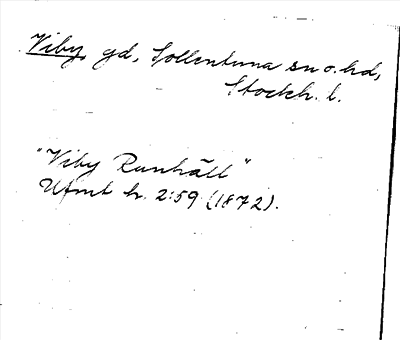 Viby, gd, Sollentuna sn o. hd,
Stockh. l.
"Viby Runhäll"
Ufmt h. 2:59 (1872).